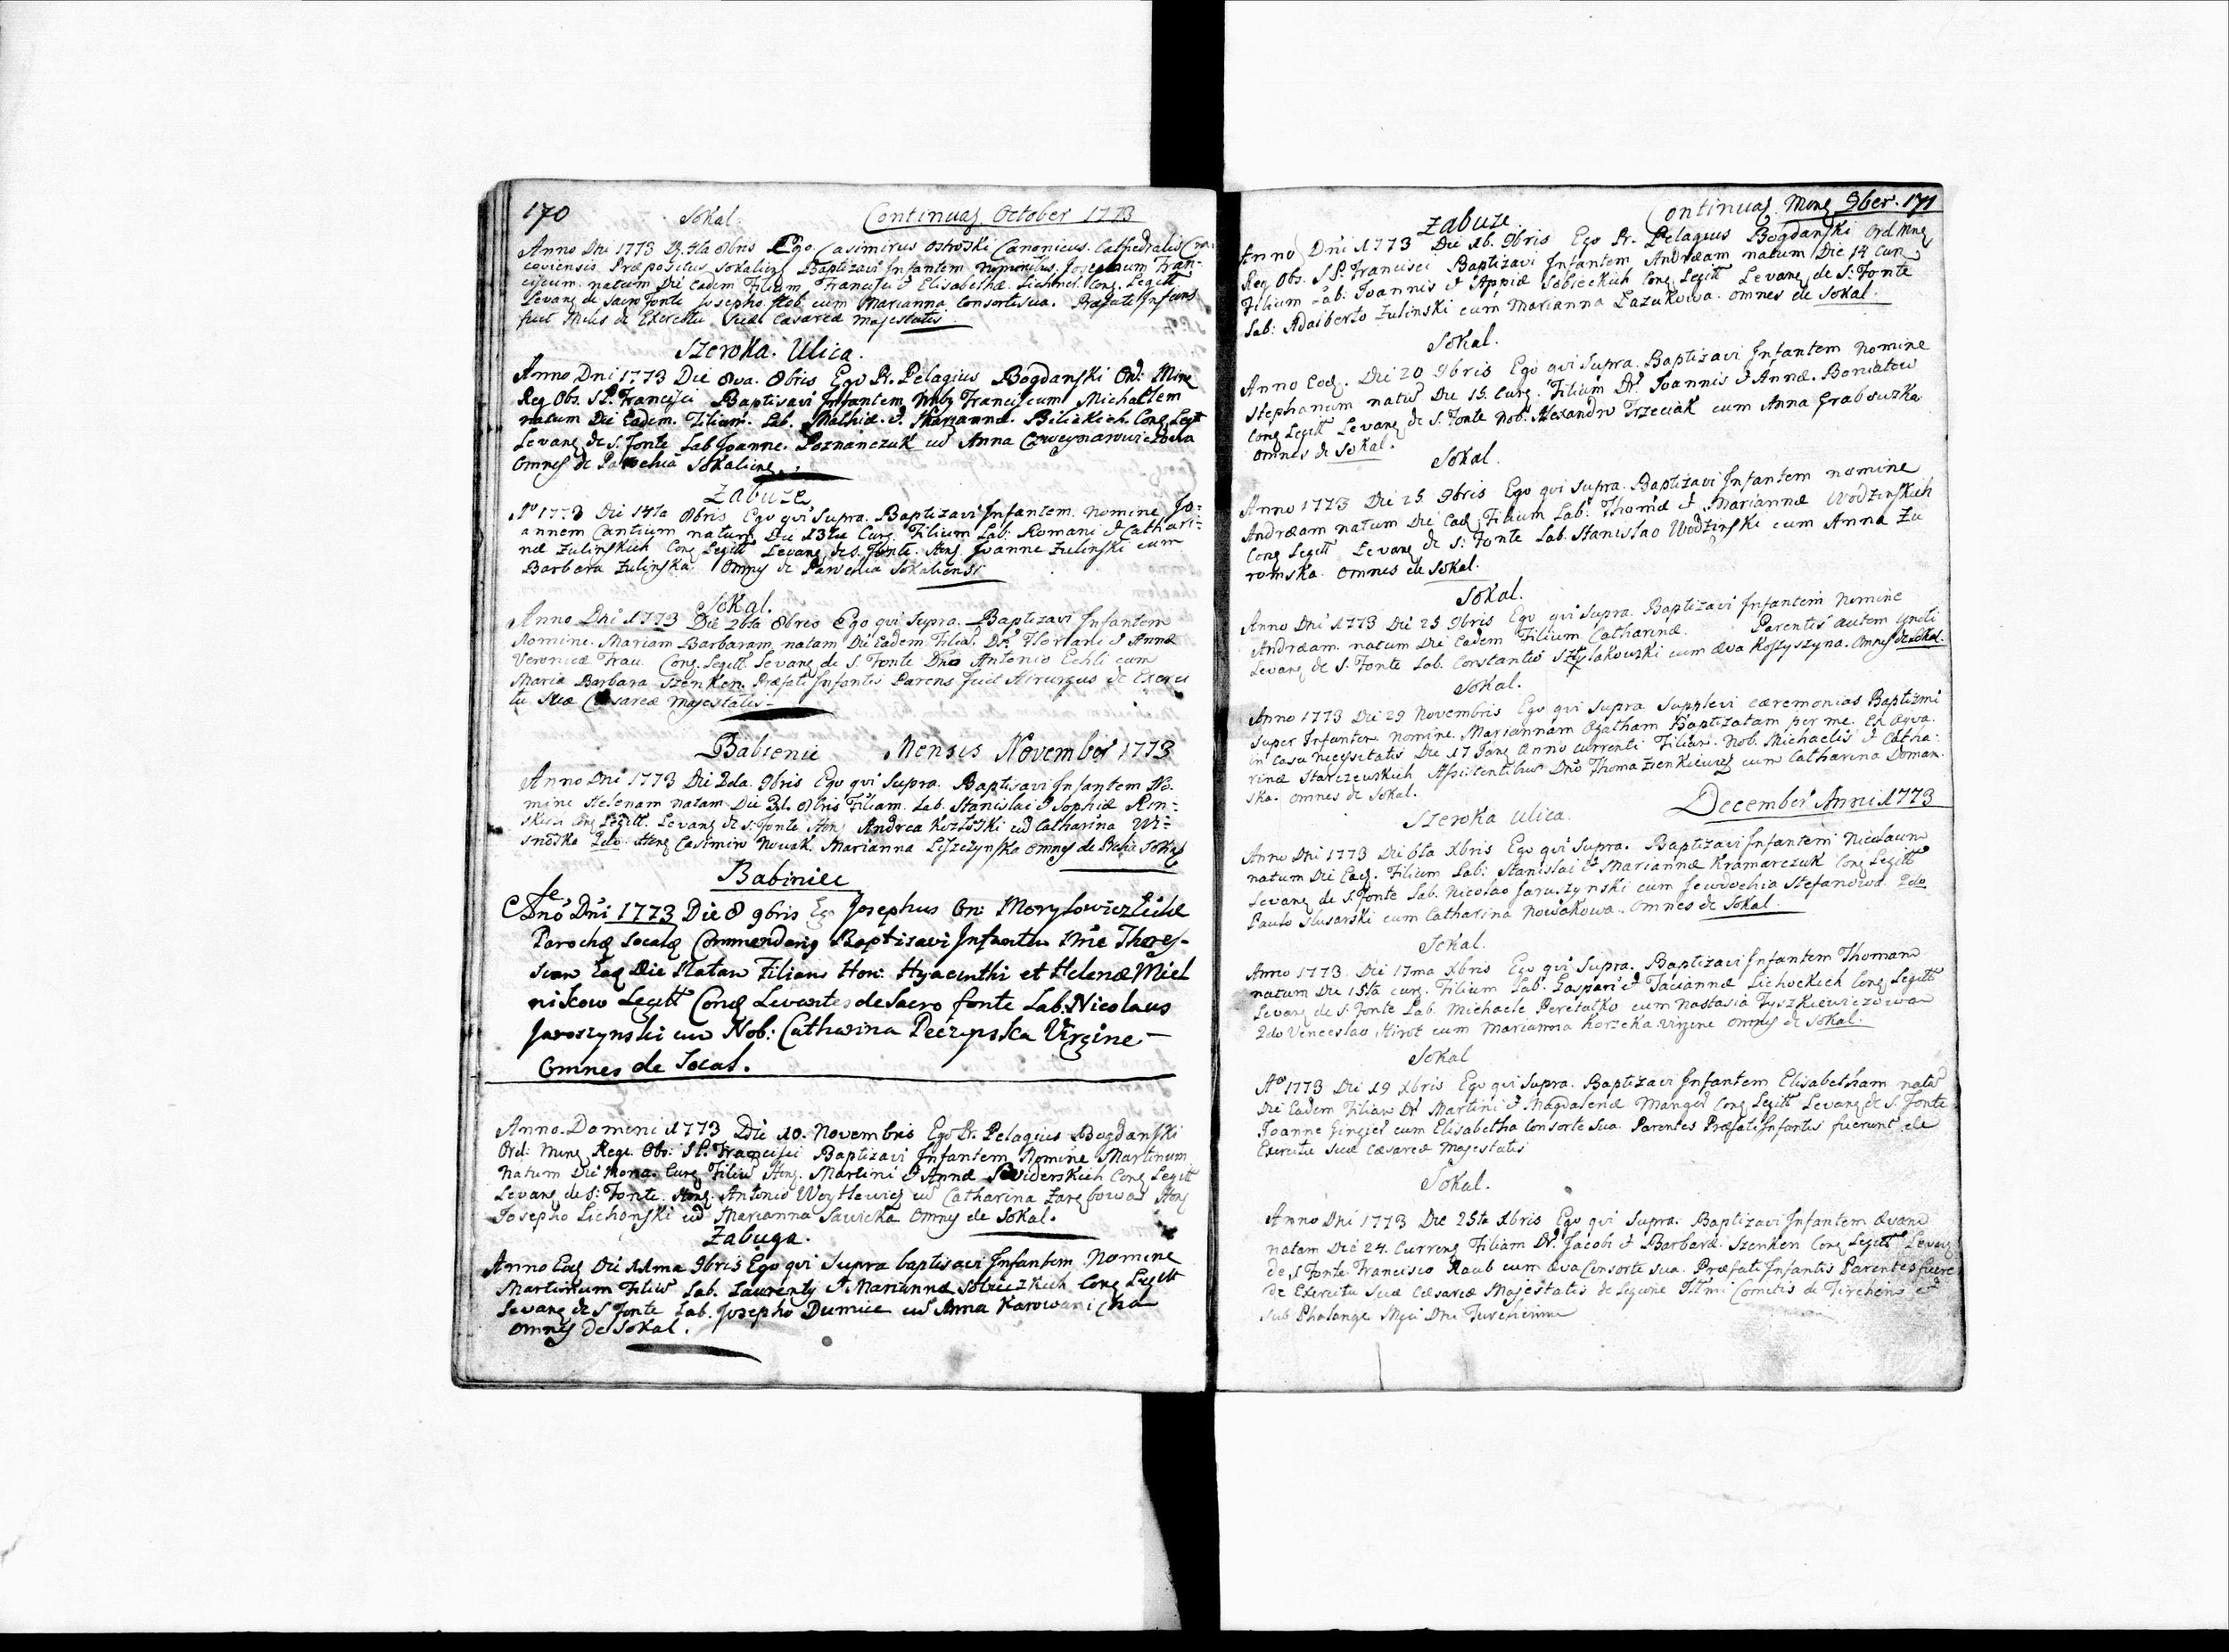 170 Sokal. Continuaõ October 1773
Anno Dni 1773 D. 4ta 8bris Ego Casimirus Ostroski Canonicus Cathedralis
coviensis Præpositus Sokalien Baptizavi Infantem nominibus Josephum Fran-
ciscum natum Die Eadem Filium Francisci & Elisabethæ Lichnel Conj. Legitt
Levan de Sacro Fonte Josepho Hob cum Marianna Consorte sua. Præfate Infans
fuit Miles de Exercitu Suæ Cæsareæ Majestatis
Szeroka Ulica.
Anno Dni 1773 Die 8va. 8bris Ego Pr. Pelagius Bogdanski Ord: Min
Reg. Obs. S.P. Francisci Baptisavi Infantem Franciscum Michaelem
natum Die Eadem. Filium. Lab. Mathiæ & Mariannæ Bilickich Conj Legit
Levan de S. Fonte Lab Joanne Poznanczuk cum Anna
Omnes de Parochia Sokalien.
Zabuze
Ao 1773 Die 14ta 8bris Ego qvi Supra. Baptizavi Infantem. Nomine Jo-
annem Cantium natum Die 13tia Curen Filium Lab: Romani & Cathari-
næ Zulinskich Conj Legitt Levan de S. Fonte. Hon. Joanne Zulinski cum
Barbara Zulinska Omnes de Parochia Sokaliensi
Sokal.
Anno Dni 1773 Die 26ta 8bris Ego qvi Supra. Baptizavi Infantem
Nomine. Mariam Barbaram natam Die Eadem Filiã Dñ. Floriani & Annæ
Veronicæ Frau. Conj. Legitt. Levan de S. Fonte Dño Antonio Echli cum
Maria Barbara Szenken. Præfati Infantis Parens fuit Hirurgus de Exerci
tu Suæ Cæsareæ Majestatis
Babience Mensis November 1773
Anno Dni 1773 Die 2da. 9bris Ego qvi Supra. Baptisavi Infantem No-
mine Helenam natam Die 31. 8bris Filiam Lab. Stanislai & Sophiæ Rin-
skich Conj Legitt. Levan de S. Fonte Hon. Andrea Kozloski cũ Catharina Wi-
snoska 2do Hon Casimiro Nowak. Marianna Liszczynska Omnes de
Babiniec
Ano Dni 1773 Die 8 9bris Ego Josephus
Commendarius Baptisavi Infantem Nñie Theres-
siam Eaq Die Natam Filiam Hon: Hyacinthi et Helenæ Miel
nikow Legitt Conj Levantes de Sacro fonte Lab: Nicolaus
Jaroszynski cum Nob: Catharina Peczynska Virgine
Omnes de Socal.
Anno Domini 1773 Die 10. Novembris Ego Pr. Pelagius Bogdanski
Ord: Min Regu. Obs: S.P. Francisci Baptizavi Infantem Nomine Martinum
Natum Die Nona Curen Filiũ Hon. Martini & Annæ Swiderskich Conj Legitt
Levan de S. Fonte. Hon. Antonio Woytlewicz cũ Catharina Zarebowa Hon
Josepho Lichonski cũ Marianna Sawicka Omnes de Sokal.
Zabuga.
Anno Eod Die 11ma 9bris Ego qvi Supra baptisavi Infantem Nomine
Martinum Filiũ Lab. Laurenty & Mariannæ Sobieczkich Conj Legitt
Levan de S Fonte Lab. Josepho Dumice cũ Anna Karowanicka
Omnes de Sokal.
Zabuze Continua Mens 9ber. 171
Anno Dni 1773 Die 16. 9bris Ego Pr. Pelagius Bogdanski Ord Min
Reg Obs. S.P. Francisci Baptizavi Infantem Andræam natum Die 14 Cur
Filium Lab: Joannis & Appiæ Sobieckich Conj Legitt Levan de S: Fonte
Lab: Adalberto Zulinski cum Marianna Lazukowa. Omnes de Sokal.
Sokal.
Anno Eod. Die 20 9bris Ego qvi Supra. Baptizavi Infantem nomine
Stephanum natũ Die 15. Curen. Filium Dñ. Joannis & Annæ. Boniatow
Conj Legitt Levan de S. Fonte Nob. Alexandro Trzeciak cum Anna Grabouzka
Omnes de Sokal.
Sokal.
Anno 1773 Die 25. 9bris Ego qvi Supra. Baptizavi Infantem nomine
Andræam natum Die Ead Filium Lab: Thomæ & Mariannæ Wodzinskich
Conj Legitt Levan de S: Fonte Lab. Stanislao Wodzinski cum Anna Zu
romska. Omnes de Sokal.
Sokal.
Anno Dni 1773 Die 25 9bris Ego qvi Supra Baptizavi Infantem Nomine
Andræam. natum Die Eadem Filium Catharinæ. Parentis autem ignoti
Levan de S. Fonte Lab. Constantio Sztylakowski cum Æva Koszyszyna. Omnes de Sokal.
Sokal.
Anno 1773 Die 29 Novembris Ego qvi Supra Supplevi cæremonias Baptizmi
Super Infantem Nomine Mariannam Agatham Baptizatam per me. Ex Aqva
in Casu Necessitatis Die 17 Jan Anno currenti Filiam. Nob. Michaelis & Catha-
rinæ Starczewskich Assistentibus Dño Thoma Zienkiewicz cum Catharina Doman-
ska. Omnes de Sokal.
Szeroka Ulica. December Anni 1773
Anno Dni 1773 Die 6ta Xbris Ego qvi Supra. Baptizavi Infantem Nicolaum
natum Die Ead. Filium Lab: Stanislai & Mariannæ Kramarczuk Conj Legitt
Levan de S. Fonte Lab. Nicolao Jaruszynski cum Jewdochia Stefanowa 2do
Paulo Slusarski cum Catharina Nowakowa. Omnes de Sokal.
Sokal.
Anno 1773 Die 17ma Xbris Ego qvi Supra. Baptizavi Infantem Thomam
natum Die 15ta Curen. Filium Lab. Gaspari & Taciannæ Lichockich Conj Legitt
Levan de S. Fonte Lab. Michaele Peretatko cum Nastasia Tyszkiewiczowa
2do Venceslao Hirot cum Marianna Korzeka Virgine Omnes de Sokal.
Sokal
Ao 1773 Die 19 Xbris Ego qvi Supra. Baptizavi Infantem Elisabetham natã
Die Eadem Filiam Dñ Martini & Magdalenæ Manger Conj Legitt Levan de S. Fonte
Joanne Gingier cum Elisabetha Consorte Sua. Parentes Præfati Infantis fuerunt de
Exercitu Suæ Cæsareæ Majestatis
Sokal.
Anno Dni 1773 Die 25ta Xbris Ego qvi Supra. Baptizavi Infantem Ævam
natam Die 24. Curren Filiam Dñ. Jacobi & Barbaræ. Szenken Conj Legitt Levan
de S Fonte Francisco Raub cum Æva Consorte Sua. Præfati Infantis Parentes fuere
de Exercitu Suæ Cæsareæ Majestatis de Legione Illmi Comitis de Tirchein &
Sub Phalange Dni